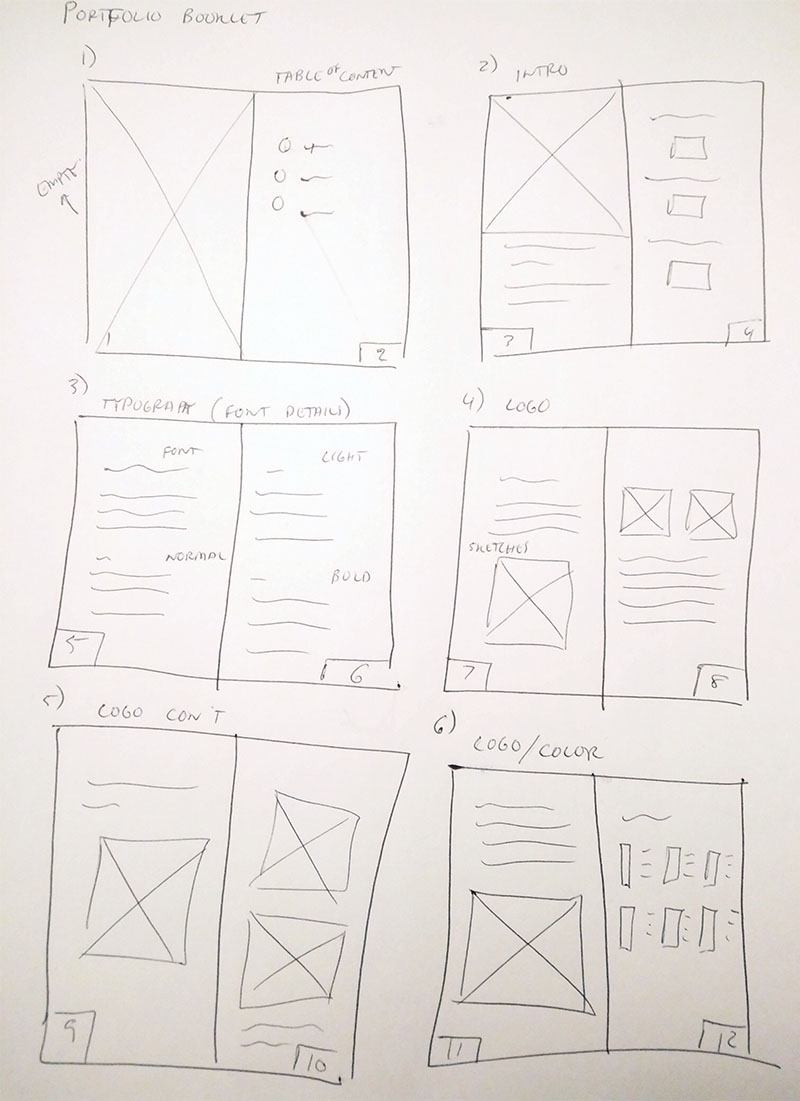 PORTFOLIO BOOKLET
1)
TABLE OF CONTENT
EMPTY
1
2
2) INTRO
3
4
3)
TYPOGRAPY (FONT DETAILS)
FONT
LIGHT
NORMAL
BOLD
5
6
4) LOGO
SKETCHES
7
8
5)
LOGO CON'T
9
10
6)
LOGO/COLOR
11
12